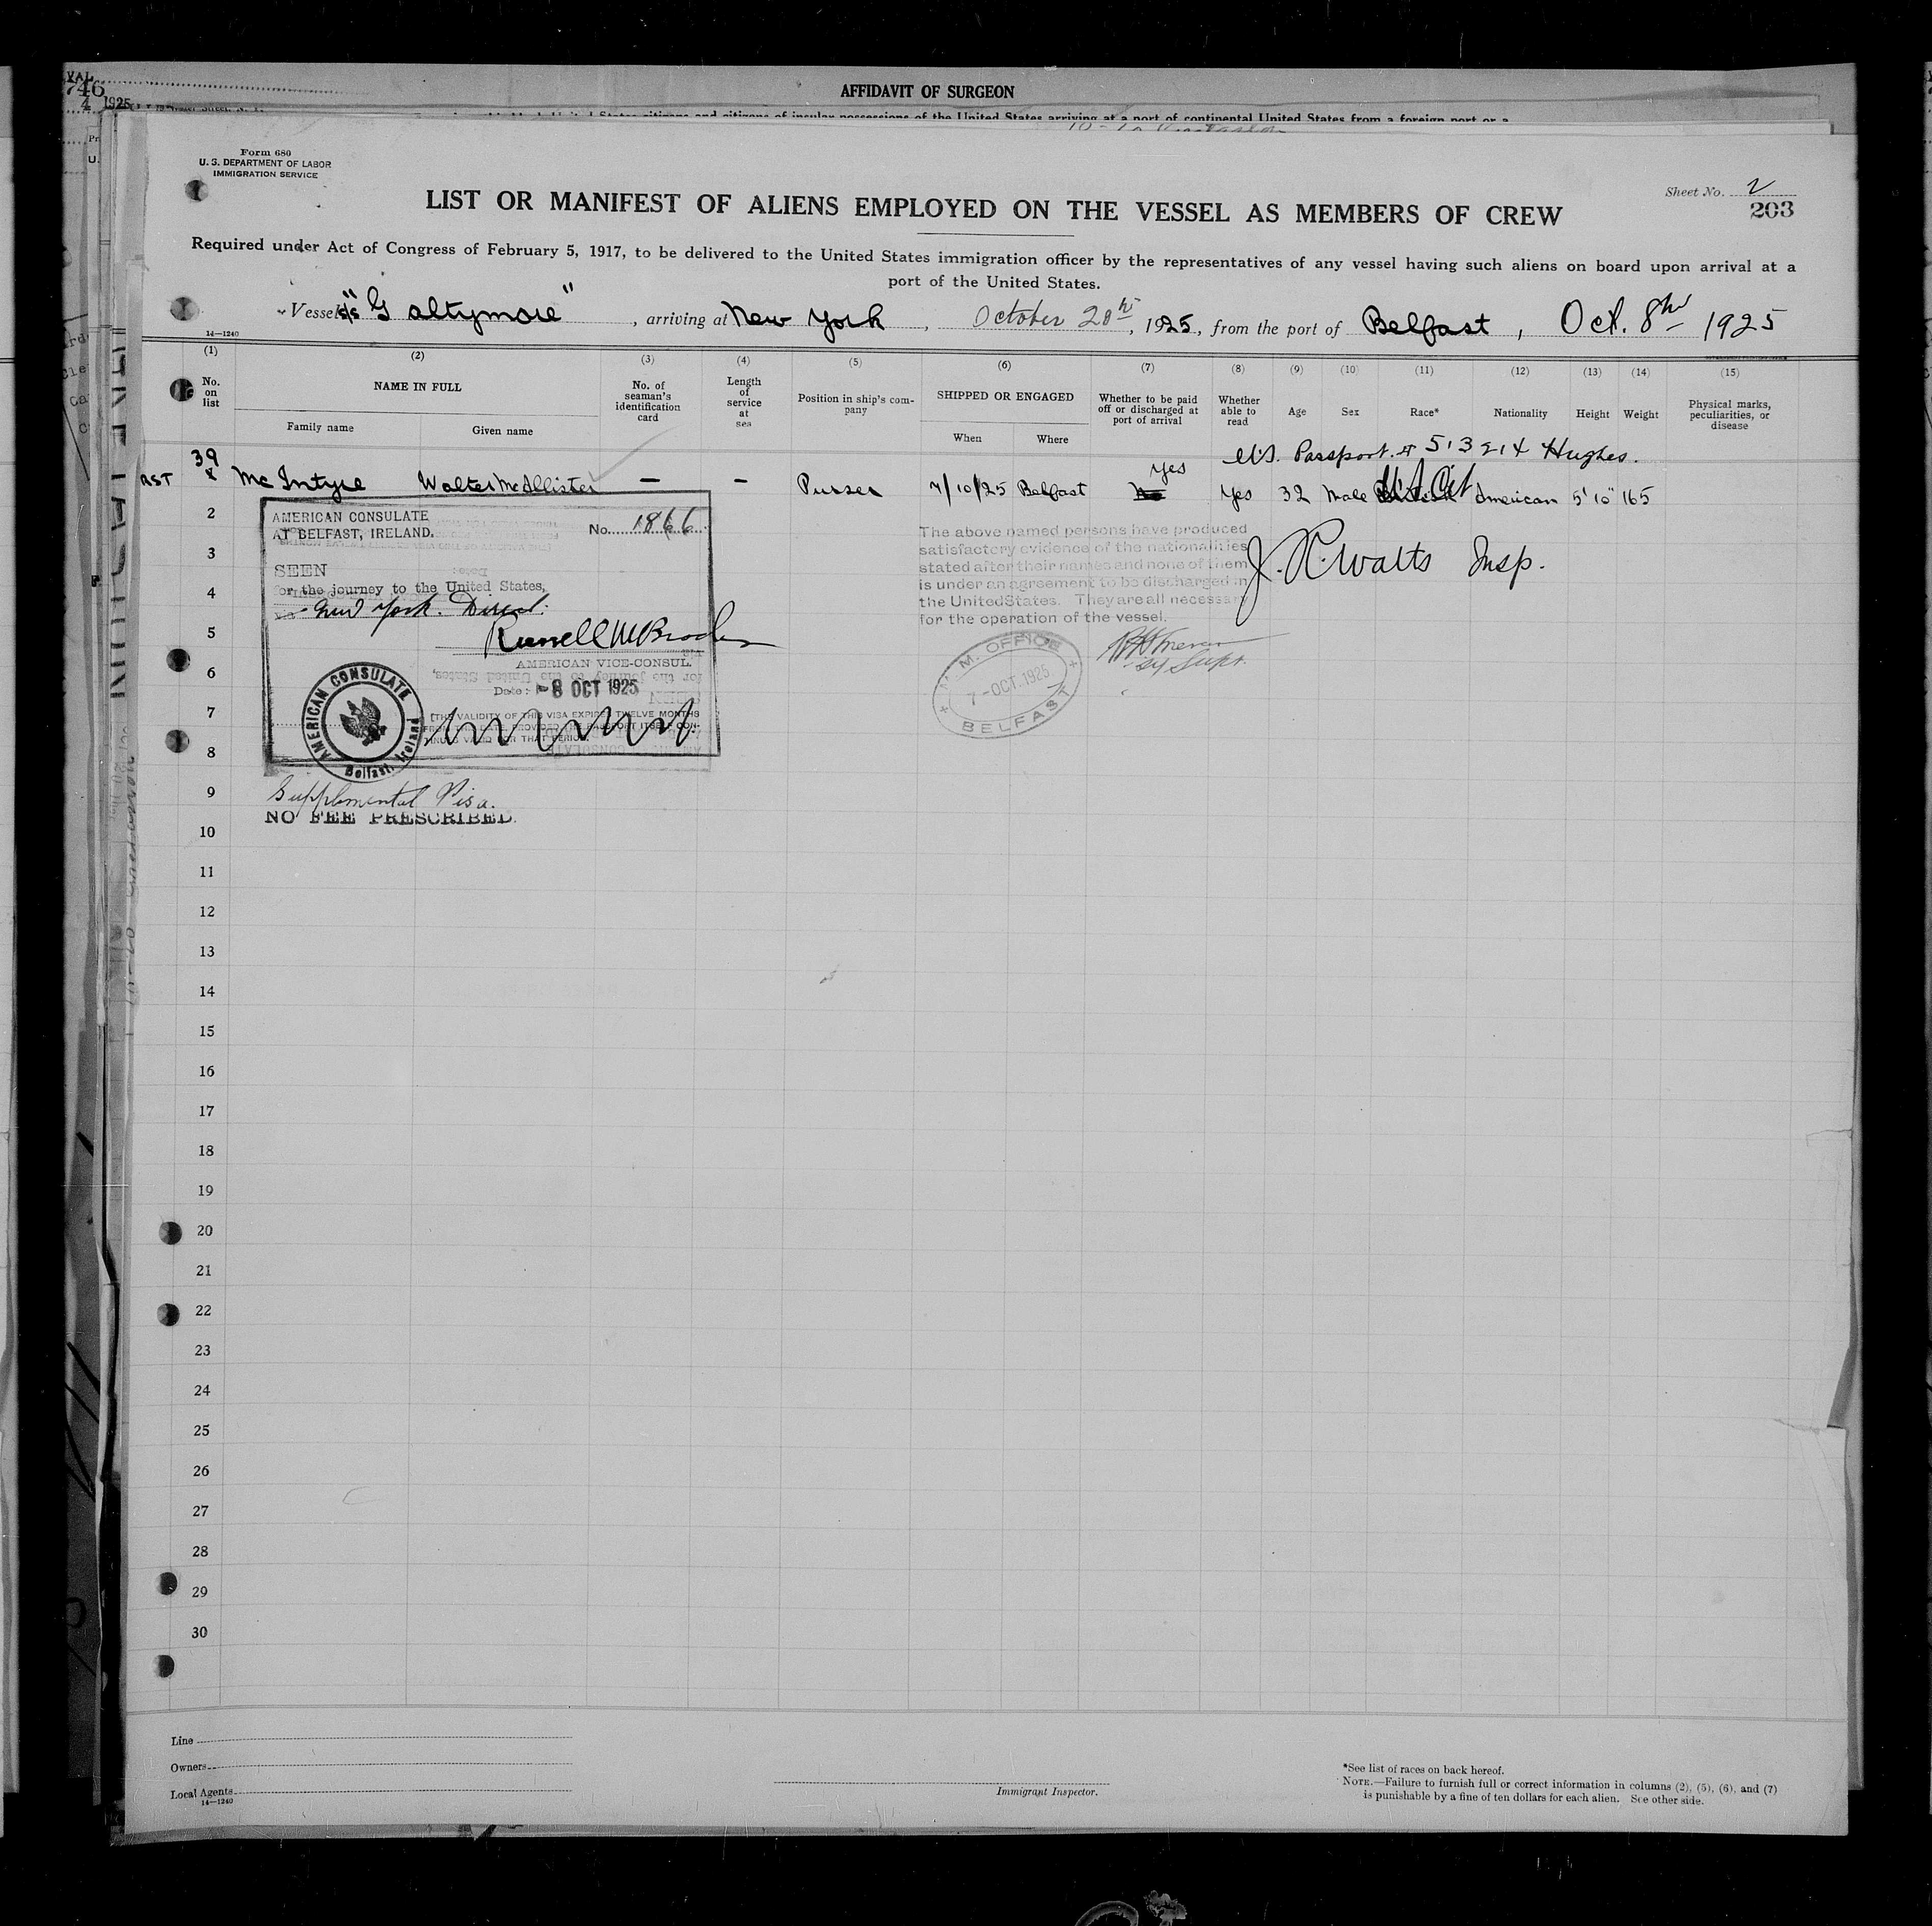 746
4 1925
AFFIDAVIT OF SURGEON
Form 680
U. S. DEPARTMENT OF LABOR
IMMIGRATION SERVICE
Sheet No. 2
203
LIST OR MANIFEST OF ALIENS EMPLOYED ON THE VESSEL AS MEMBERS OF CREW
Required under Act of Congress of February 5, 1917, to be delivered to the United States immigration officer by the representatives of any vessel having such aliens on board upon arrival at a
port of the United States.
Vessel s/s "Galtymore", arriving at New York, October 20th, 1925, from the port of Belfast, Oct. 8th 1925
14—1240
(1) (2) (3) (4) (5) (6) (7) (8) (9) (10) (11) (12) (13) (14) (15)
No. on list
NAME IN FULL
Family name Given name
No. of seaman's identification card
Length of service at sea
Position in ship's company
SHIPPED OR ENGAGED
When Where
Whether to be paid off or discharged at port of arrival
Whether able to read
Age Sex Race* Nationality Height Weight
Physical marks, peculiarities, or disease
U.S. Passport # 513214 Hughes.
39
Yes
McIntyre Walter McAllister — — Purser 7/10/25 Belfast No Yes 32 Male U.S. Cit American 5'10" 165
2
3
4
5
6
7
8
9
10
11
12
13
14
15
16
17
18
19
20
21
22
23
24
25
26
27
28
29
30
AMERICAN CONSULATE
AT BELFAST, IRELAND.
No. 1866
SEEN
for the journey to the United States,
via New York. Direct.
AMERICAN VICE-CONSUL.
Date: -8 OCT 1925
[THE VALIDITY OF THIS VISA EXPIRES TWELVE MONTHS
FROM THIS DATE, PROVIDED THE PASSPORT ITSELF CON-
TINUES VALID FOR THAT PERIOD.
AMERICAN CONSULATE
Belfast, Ireland
Supplemental Visa.
NO FEE PRESCRIBED.
The above named persons have produced
satisfactory evidence of the nationalities
stated after their names and none of them
is under an agreement to be discharged in
the United States. They are all necessary
for the operation of the vessel.
J. R. Watts Insp.
M. M. OFFICE
7-OCT.1925
BELFAST
Line
Owners
Local Agents
14—1240
Immigrant Inspector.
*See list of races on back hereof.
NOTE.—Failure to furnish full or correct information in columns (2), (5), (6), and (7)
is punishable by a fine of ten dollars for each alien. See other side.